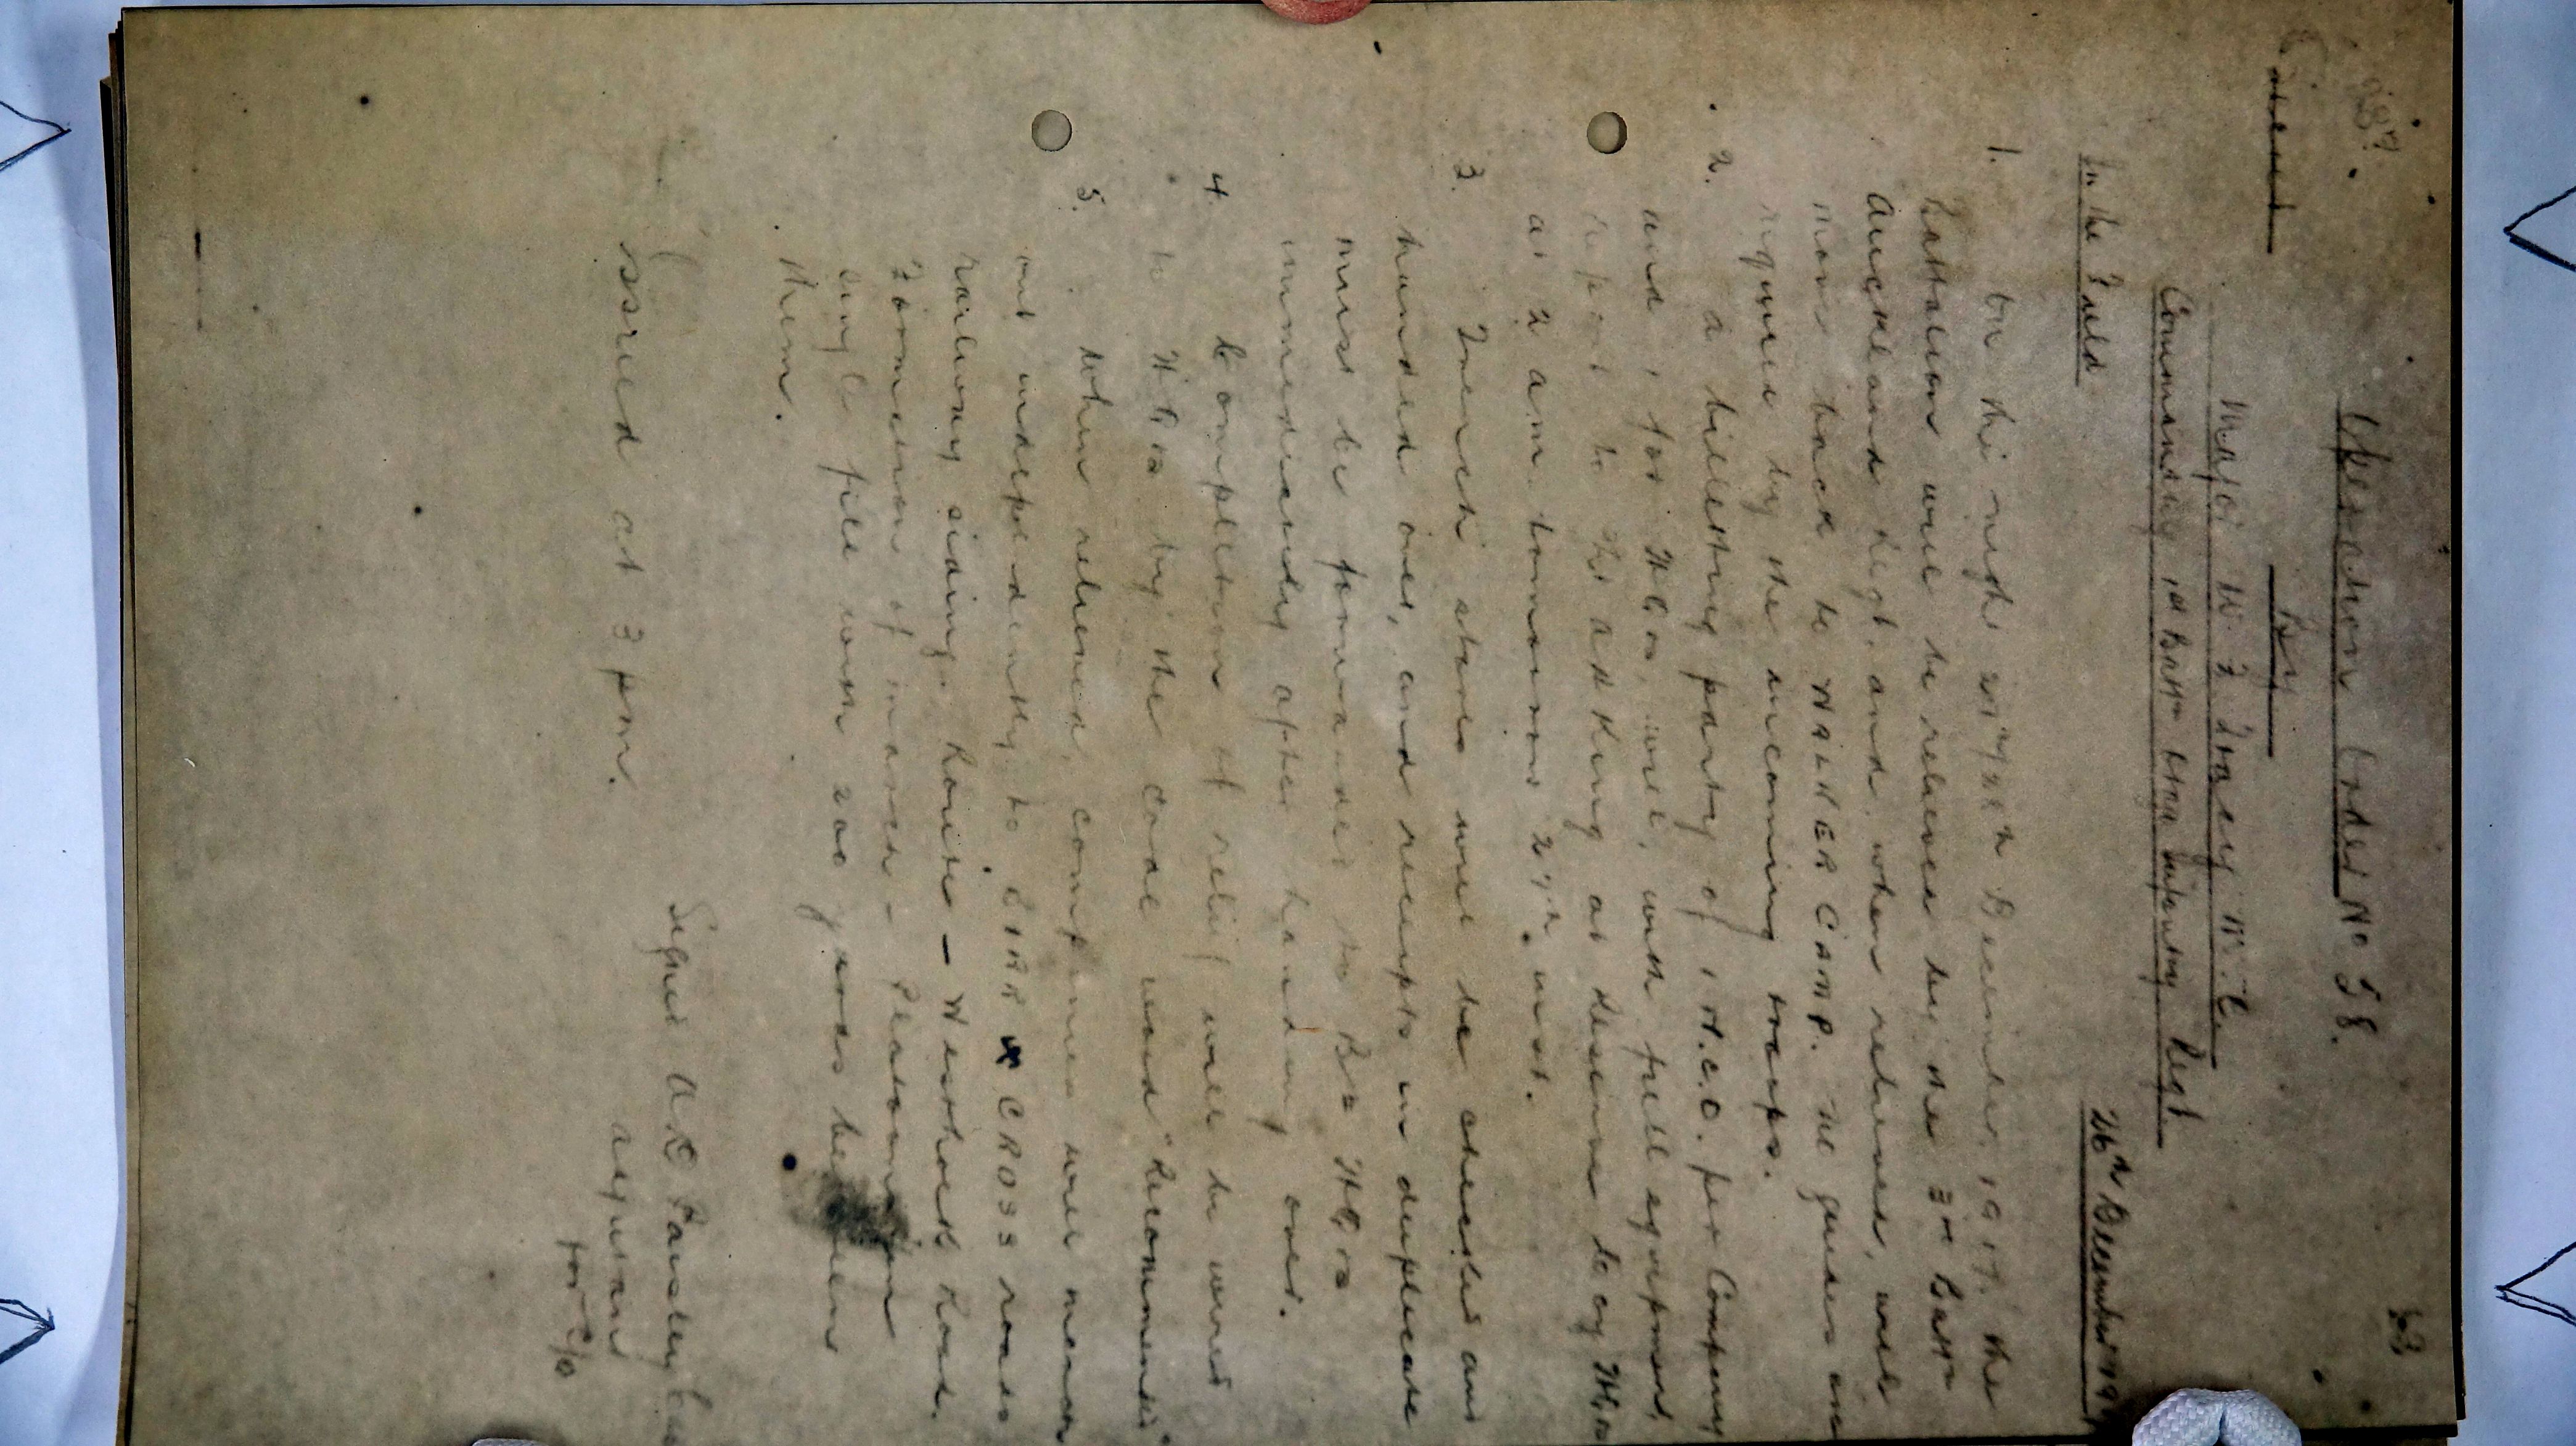 63
Operation Order No 58.
By
Major W. F. Tracey M.C.
Commanding 1st Battn Otago Infantry Regt
In the Field
26th December 191
1. On the night 27th/28th December, 1917, the
Battalion will be relieved by the 3rd Battn
Auckland Regt. and, when relieved, will
move back to WALKER CAMP. No guides are
required by the incoming troops.
2. A billeting party of 1 N.C.O. per Company,
and 1 for HQrs, will, with full equipment,
report to the at Reserve Coy HQrs
at 2 am. tomorrow 27th inst.
3. Trench stores will be checked and
handed over, and receipts in duplicate
must be forwarded to Bn HQrs
immediately after handing over.
4. Completion of relief will be wired
to HQrs by the code word "Recommended"
5. When relieved, companies will march
out independently to BIRR CROSS roads
railway siding. Route - Westhoek Road.
Formation of march - Platoons in
single file with 200 yards between
them.
Signed
Adjutant
for C/O
Issued at 3 pm.